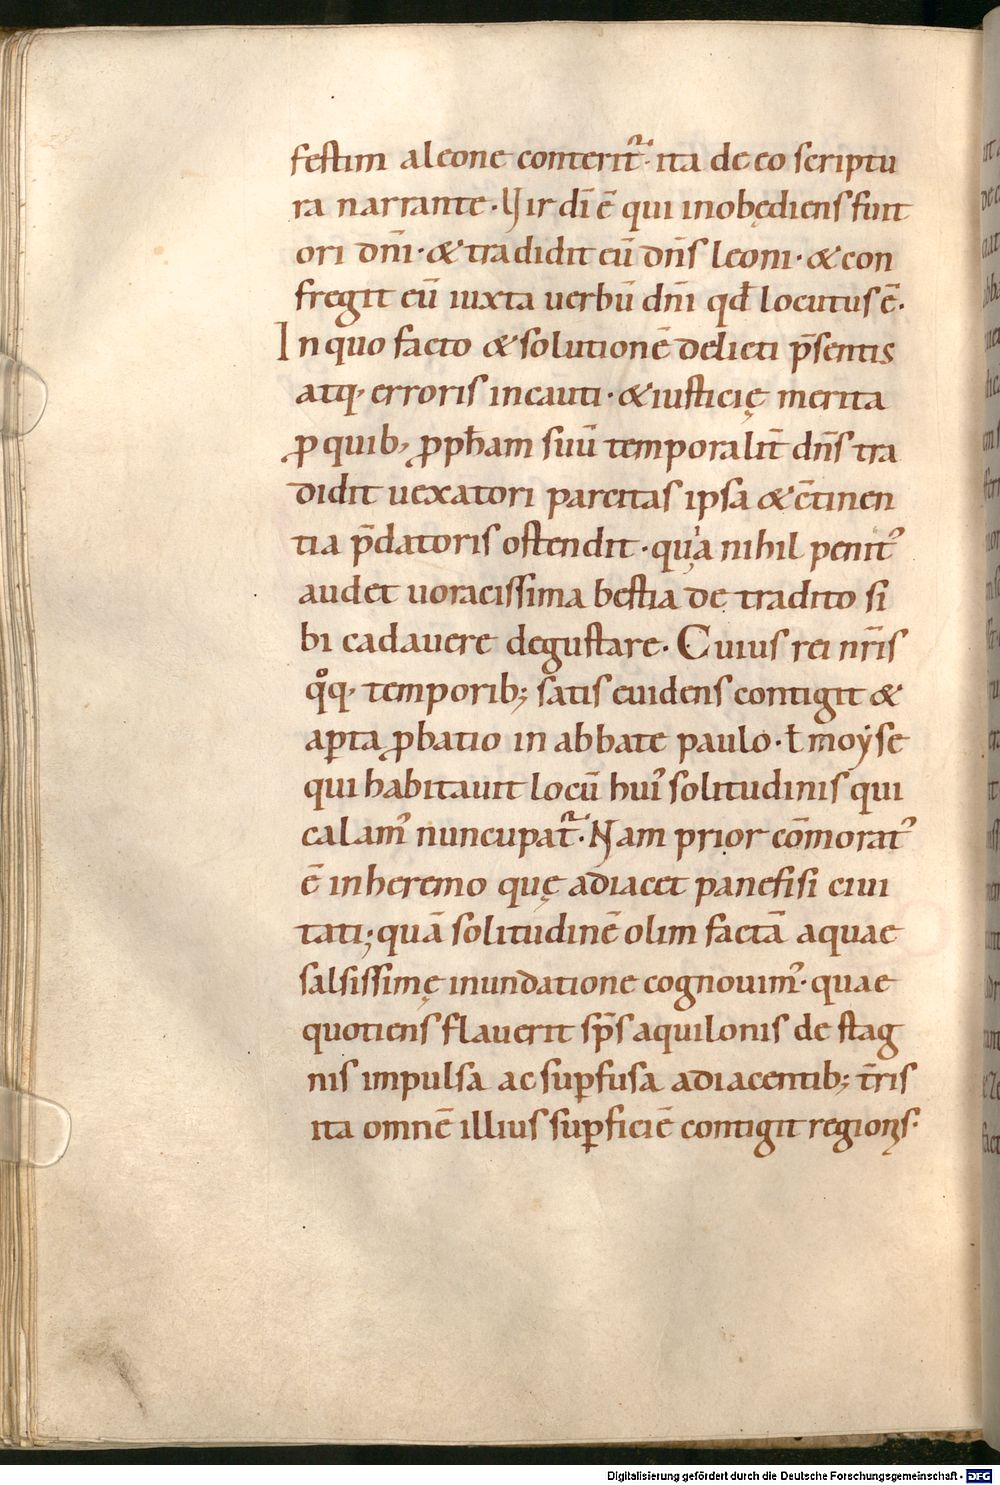 festim aleone conterit᷑· ita de eo scriptu
ra narrante · Vir dī ē qui inobędiens fuit
ori dn̄i · & tradidit eū dn̄s leoni · & con
fregit eū iuxta uerbū dn̄i qđ locutus ē ·
In quo facto & solutionē delicti p̄sentis
atq· erroris incauti · & iusticię merita
ꝓ quib; ꝓpħam suū temporalit̄ dn̄s tra
didit uexatori parcitas ipsa & c̄tinen
tia p̄datoris ostendit · quia nihil penitꝰ
audet uoracissima bestia de tradito si
bi cadauere degustare · Cuius rei nr̄is
qͦq· temporib; satis euidens contigit &
aꝑta ꝓbatio in abbate paulo · ł moẏse
qui habitauit locū huiꝰ solitudinis qui
calamꝰ nuncupat᷑ · Nam prior cōmoratꝰ
ē inheremo quę adiacet panefisi ciui
tati; quā solitudinē olim factā aquae
salsissimę inundatione cognouimꝰ · quae
quotiens flauerit sp̄s aquilonis de stag
nis impulsa ac suꝑfusa adiacentib; t̄ris
ita omnē illius suꝑficiē contigit regionis ·
Digitalisierung gefördert durch die Deutsche Forschungsgemeinschaft - DFG